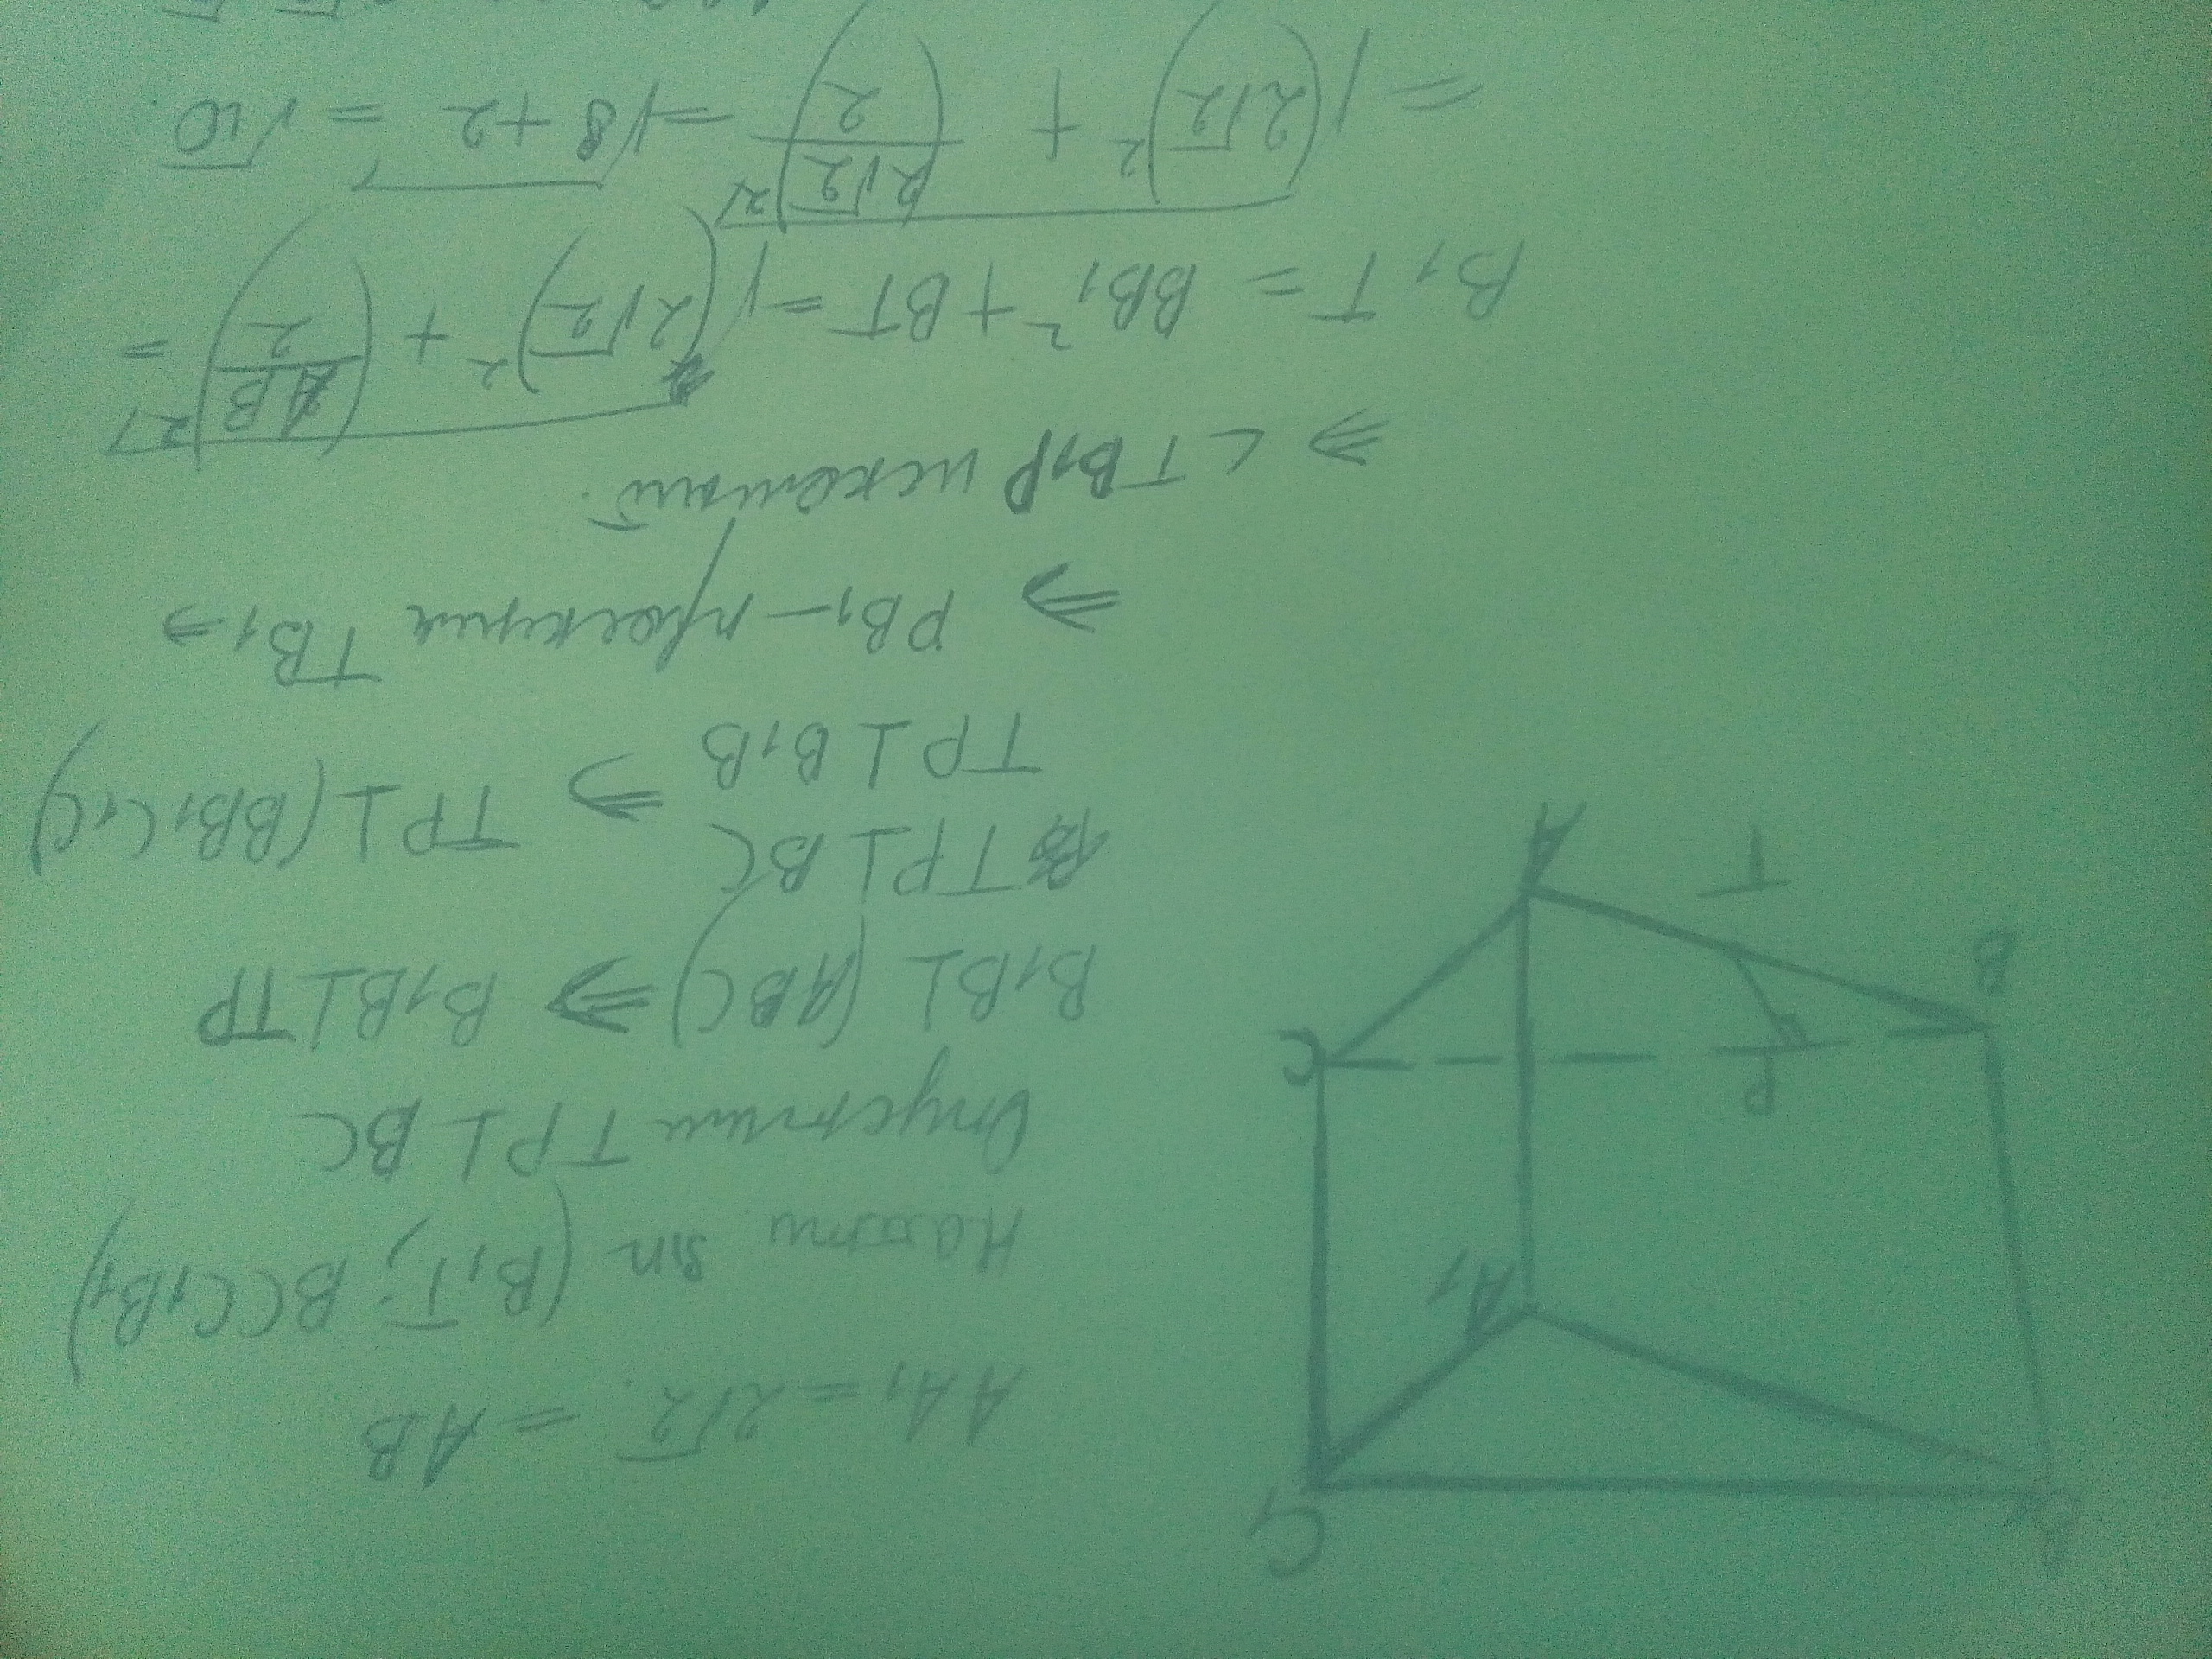 AA₁ = 2√2 = AB
Найти sin (B₁T; BCC₁B₁)
Опустим TP ⊥ BC
B₁B ⊥ (ABC) ⇒ B₁B ⊥ TP
TP ⊥ BC
TP ⊥ B₁B ⇒ TP ⊥ (BB₁C₁C)
⇒ PB₁ – проекция TB₁ ⇒
⇒ ∠TB₁P искомый.
B₁T = BB₁² + BT = √((2√2)² + (AB/2)²) =
= √((2√2)² + (2√2/2)²) = √(8+2) = √10.
C₁
A₁
P
C
B
T
A